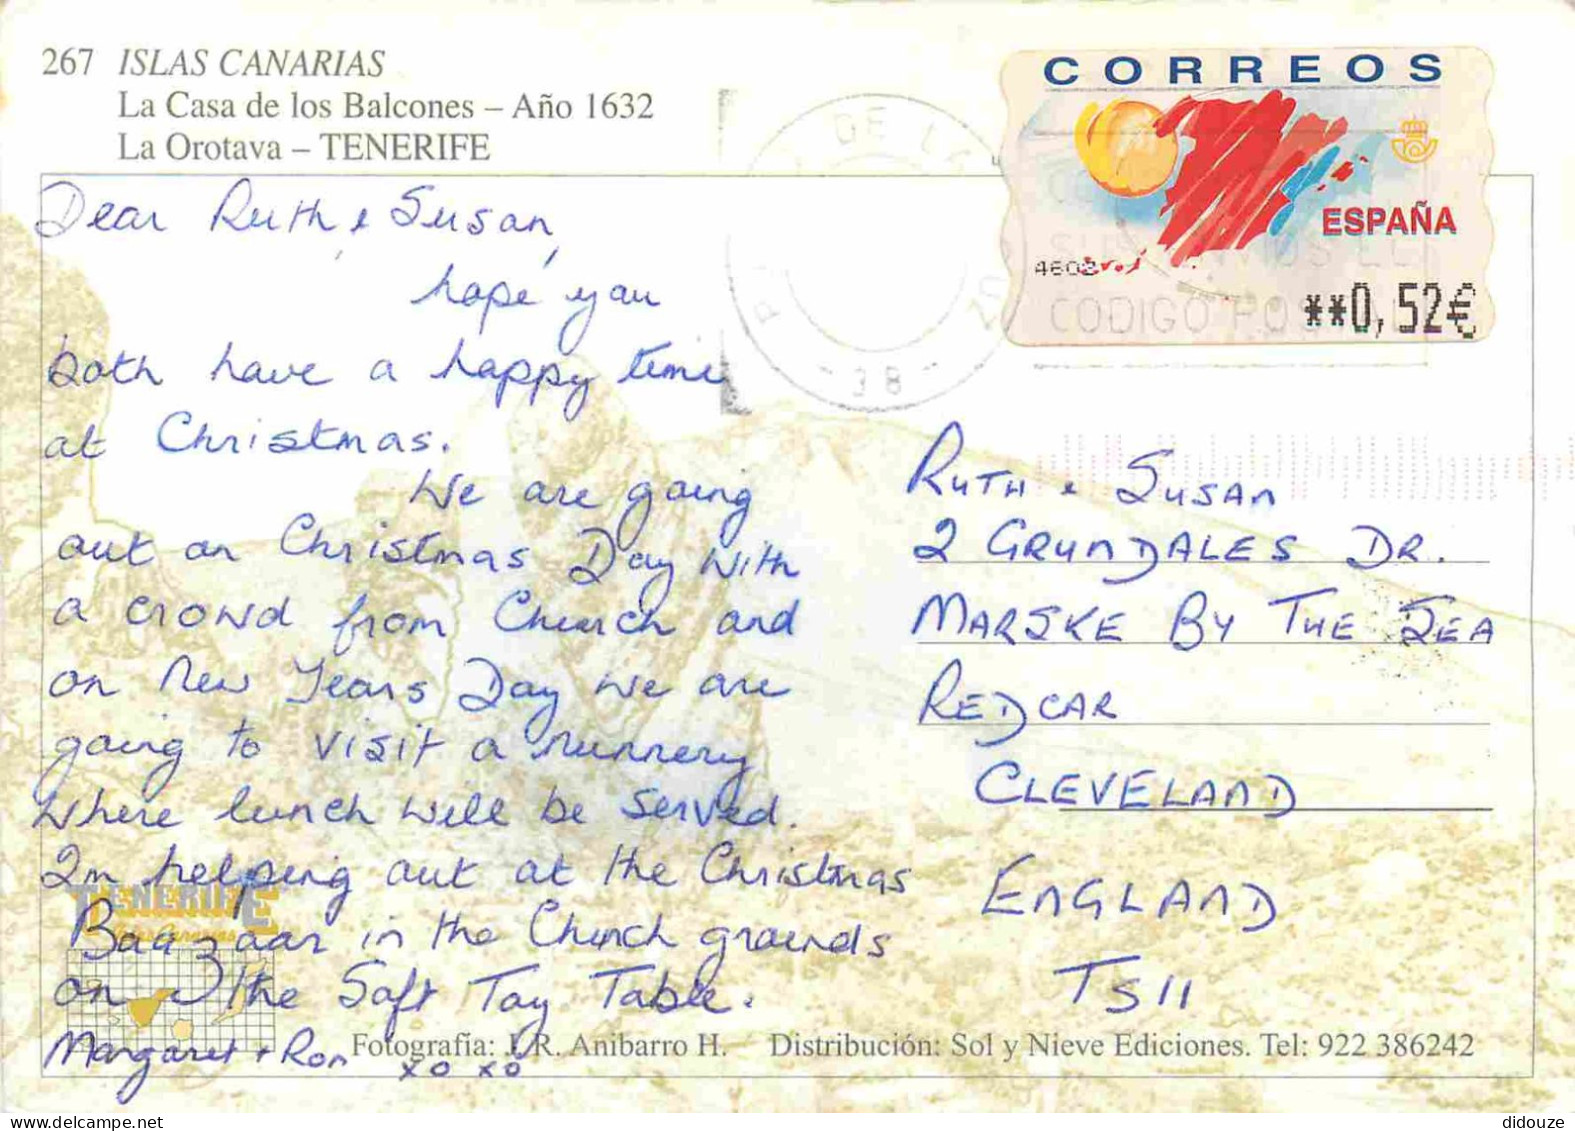 267 ISLAS CANARIAS
La Casa de los Balcones – Año 1632
La Orotava – TENERIFE
CORREOS
ESPAÑA
4602
CODIGO POS
**0,52€
DE LA
- 38 -
Dear Ruth & Susan,
hope you
both have a happy time
at Christmas.
We are going
out on Christmas Day with
a crowd from Church and
on New Years Day we are
going to visit a nunnery
where lunch will be served.
Im helping out at the Christmas
Baazaar in the Church grounds
on the Soft Toy Table.
Margaret + Ron xo xo
Ruth & Susan
2 Grundales Dr.
Marske By The Sea
Redcar
Cleveland
England
TS11
TENERIFE
Fotografía: J. R. Anibarro H. Distribución: Sol y Nieve Ediciones. Tel: 922 386242
didouze